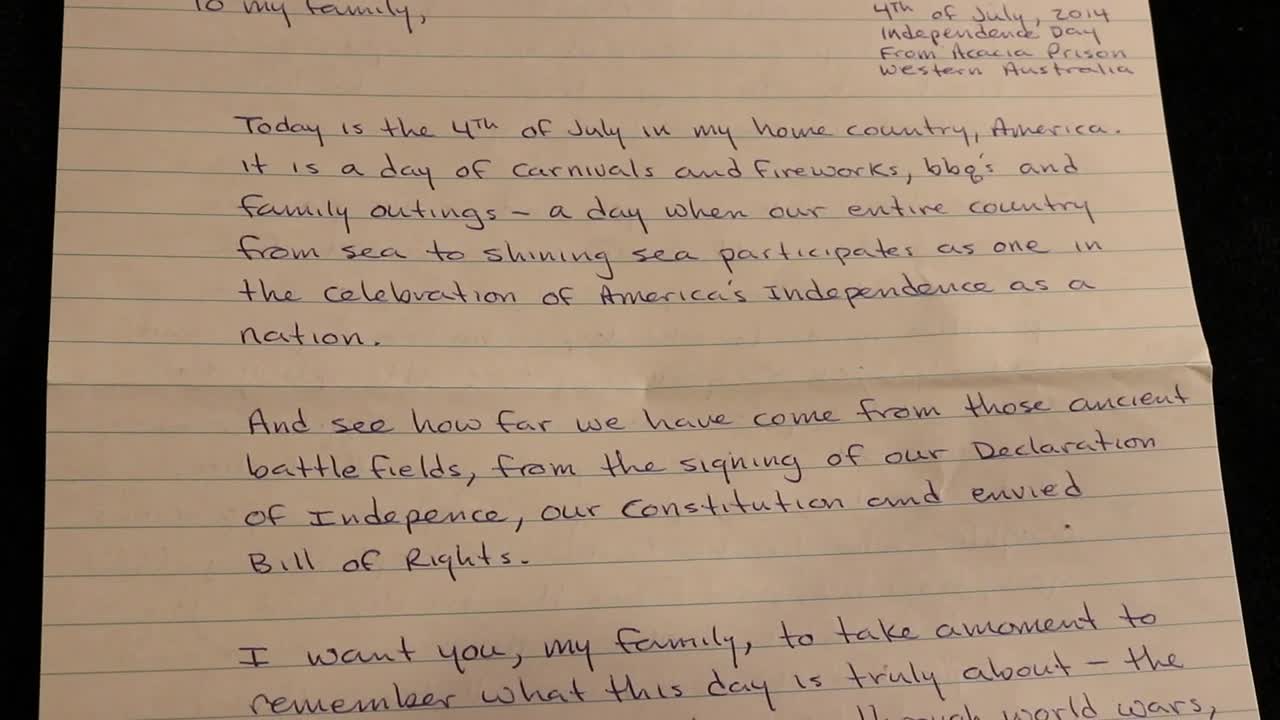 To my family,
4TH of July, 2014
Independence Day
From Acacia Prison
Western Australia
Today is the 4TH of July in my home country, America.
it is a day of carnivals and fireworks, bbq's and
family outings – a day when our entire country
from sea to shining sea participates as one in
the celebration of America's Independence as a
nation.
And see how far we have come from those ancient
battlefields, from the signing of our Declaration
of Indepence, our Constitution and envied
Bill of Rights.
I want you, my family, to take amoment to
remember what this day is truly about – the
through world wars,